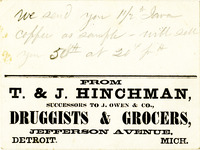 We send you 1/2 # Java
coffee as sample - will sell
you 50 # at 20¢
FROM
T. & J. HINCHMAN,
SUCCESSORS TO J. OWEN & CO.,
DRUGGISTS & GROCERS,
JEFFERSON AVENUE,
DETROIT. MICH.